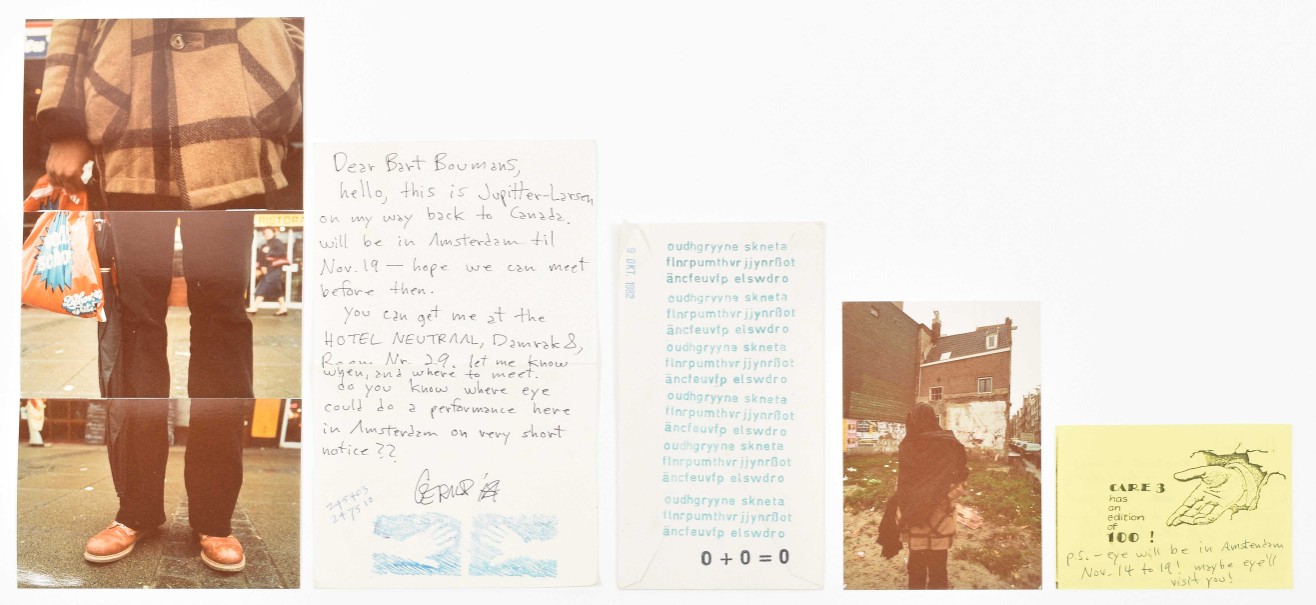 RISTORA
Dear Bart Boumans,
hello, this is Jupitter-Larsen
on my way back to Canada.
will be in Amsterdam til
Nov. 19 — hope we can meet
before then.
You can get me at the
HOTEL NEUTRAAL, Damrak 8,
Room Nr. 29. let me know
when, and where to meet.
do you know where eye
could do a performance here
in Amsterdam on very short
notice??
9 OKT. 1982
oudhgryyne skneta
flnrpumthvr jjynrßot
äncfeuvfp elswdro
oudhgryyne skneta
flnrpumthvr jjynrßot
äncfeuvfp elswdro
oudhgryyne skneta
flnrpumthvr jjynrßot
äncfeuvfp elswdro
oudhgryyne skneta
flnrpumthvr jjynrßot
äncfeuvfp elswdro
oudhgryyne skneta
flnrpumthvr jjynrßot
äncfeuvfp elswdro
oudhgryyne skneta
flnrpumthvr jjynrßot
äncfeuvfp elswdro
0 + 0 = 0
CARE 3
has
an
edition
of
100 !
p.s. — eye will be in Amsterdam
Nov. 14 to 19! maybe eye'll
visit you!